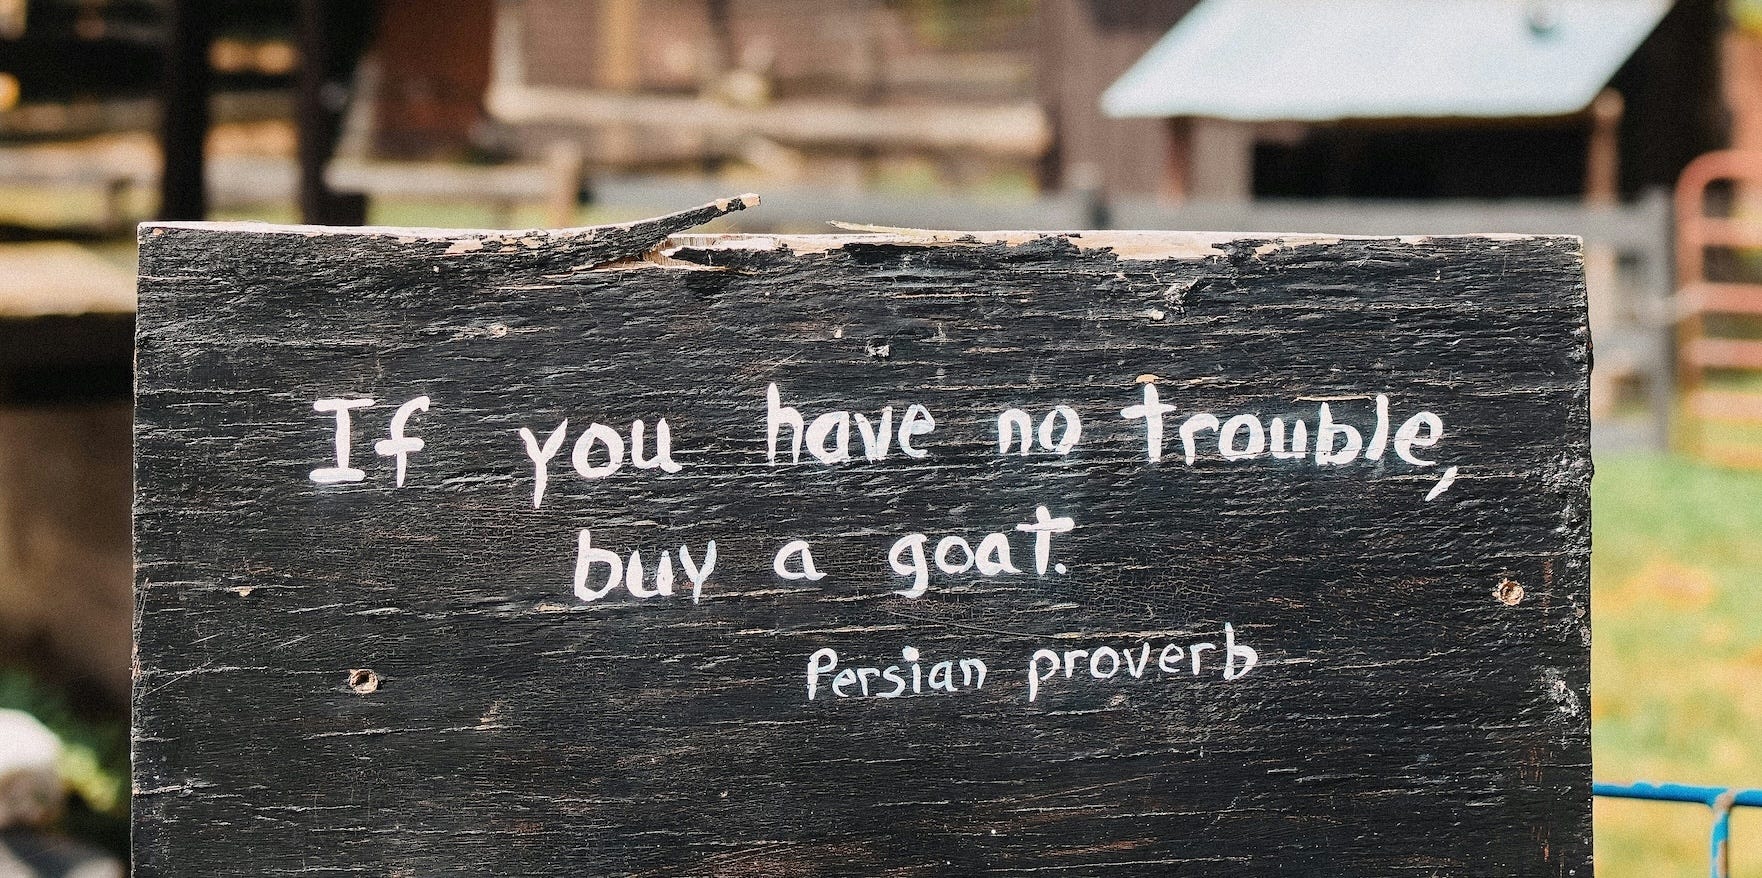 If you have no trouble,
buy a goat.
Persian proverb